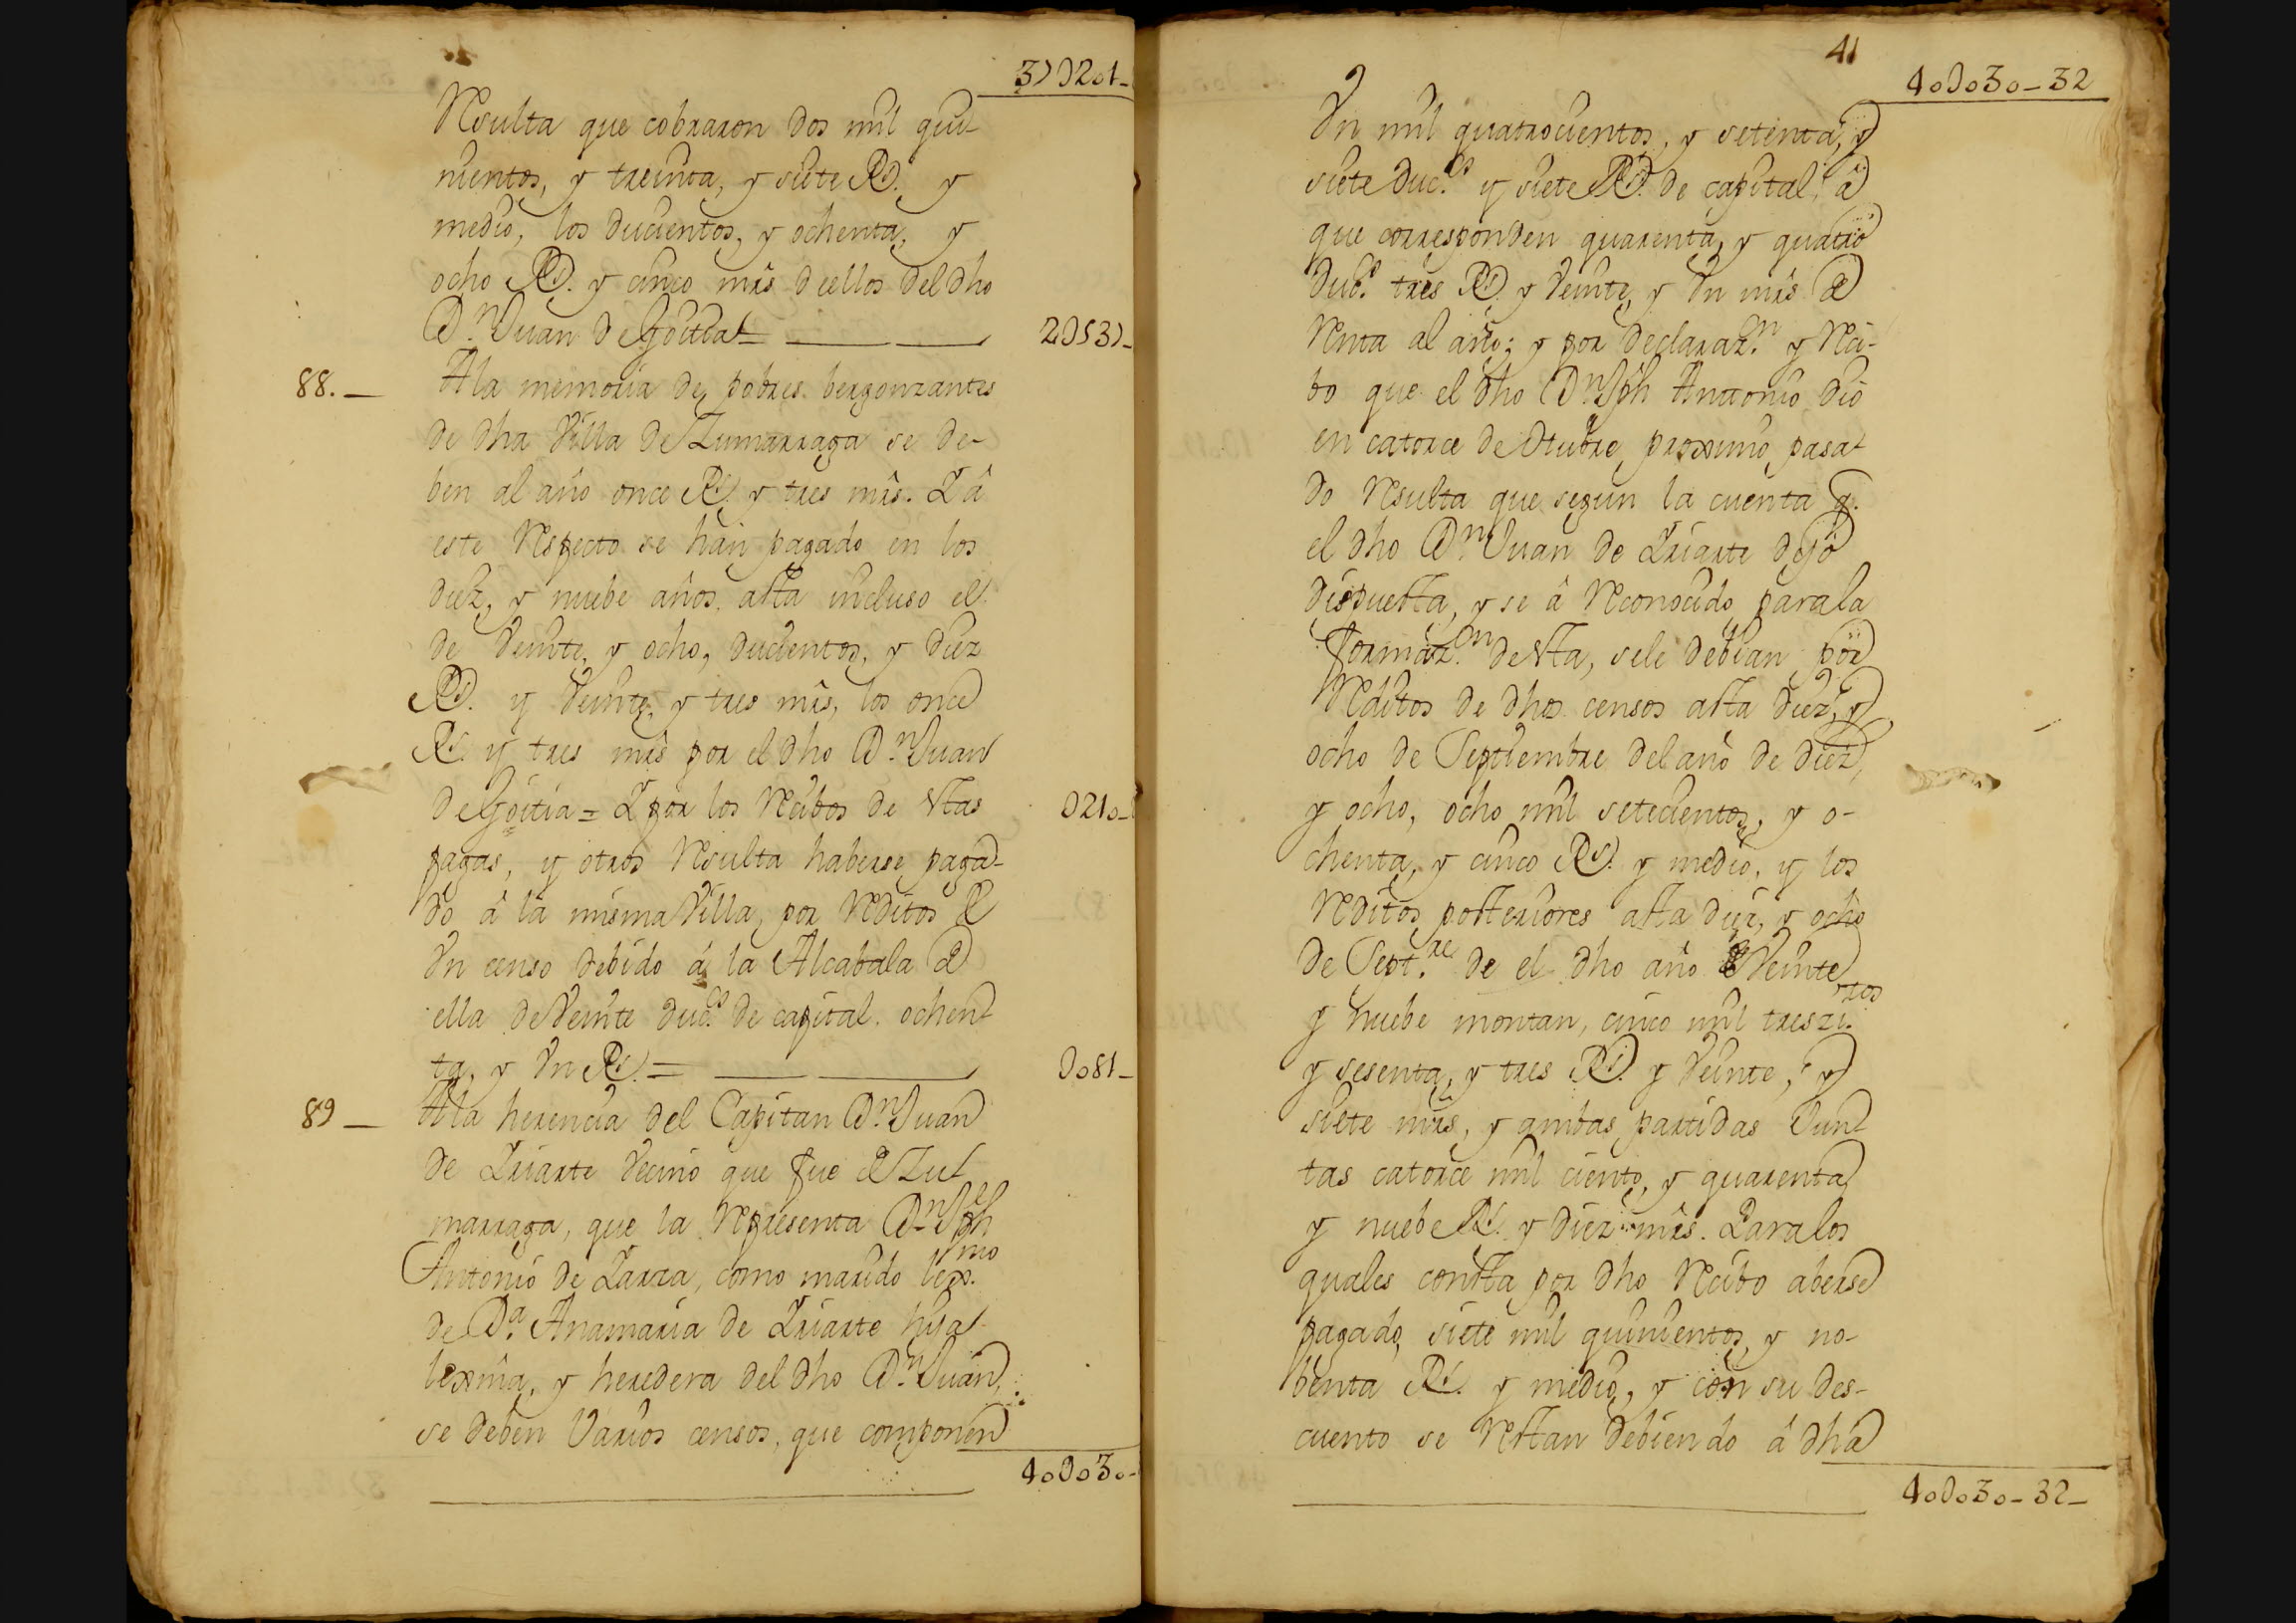 37D201-
Resulta que cobraron dos mil qui-
nientos, y treinta, y siete Rs. y
medio, los ducientos, y ochenta, y
ocho Rs. y cinco mrs deellos del dho
Dn Juan de Goitia = 2D537-
88.— Ala memoria de pobres bergonzantes
de dha Villa de Zumarraga se de-
ben al año once Rs. y tres mrs. Y â
este Respecto se han pagado en los
diez, y nuebe años asta incluso el
de Veinte, y ocho, ducientos, y diez
Rs. y Veinte, y tres mrs, los once
Rs. y tres mrs por el dho Dn Juan
de Goitia = Y por los Recibos de estas D210-
pagas, y otros Resulta haberse paga-
do â la misma Villa, por Reditos de
Un censo debido á la Alcabala de
ella de Veinte duc.os de capital ochen
ta, y Un Rs. = D081-
89— Ala herencia del Capitan Dn Juan
de Yriarte Vecino que fue de Zu
marraga, que la Representa Dn Jph
Antonio de Yarza, como marido lex.mo
de Da. Anamaria de Yriarte hija
lexma, y heredera del dho Dn Juan,
se deben Varios censos, que componen
40D030-
41
40D030-32
Un mil quatrocientos, y setenta, y
siete Duc.s y siete Rs. de capital, â
que corresponden quarenta, y quatro
Duc.s tres Rs. y Veinte, y Un mrs de
Renta al año; y por declaraz.on y Reci-
bo que el dho Dn Jph Antonio dió
en catorce de Otubre proximo pasa
do Resulta que segun la cuenta q.
el dho Dn Juan de Yriarte dejó
dispuesta, y se â Reconocido para la
formaz.on de esta, sele debian por
Reditos de dhos censos asta diez, y
ocho de Septiembre del año de diez,
y ocho, ocho mil setecientos, y o-
chenta, y cinco Rs. y medio, y los
Reditos posteriores asta diez, y ocho
de Sept.re de el dho año de Veinte
y nuebe montan, cinco mil treszi.tos
y sesenta, y tres Rs. y Veinte, y
siete mrs, y ambas partidas Jun
tas catorce mil ciento, y quarenta
y nuebe Rs. y diez mrs. Para los
quales consta por dho Recibo aberse
pagado, siete mil quinientos, y no-
benta Rs. y medio, y con su des-
cuento se Restan debiendo á dha
40D030-32-